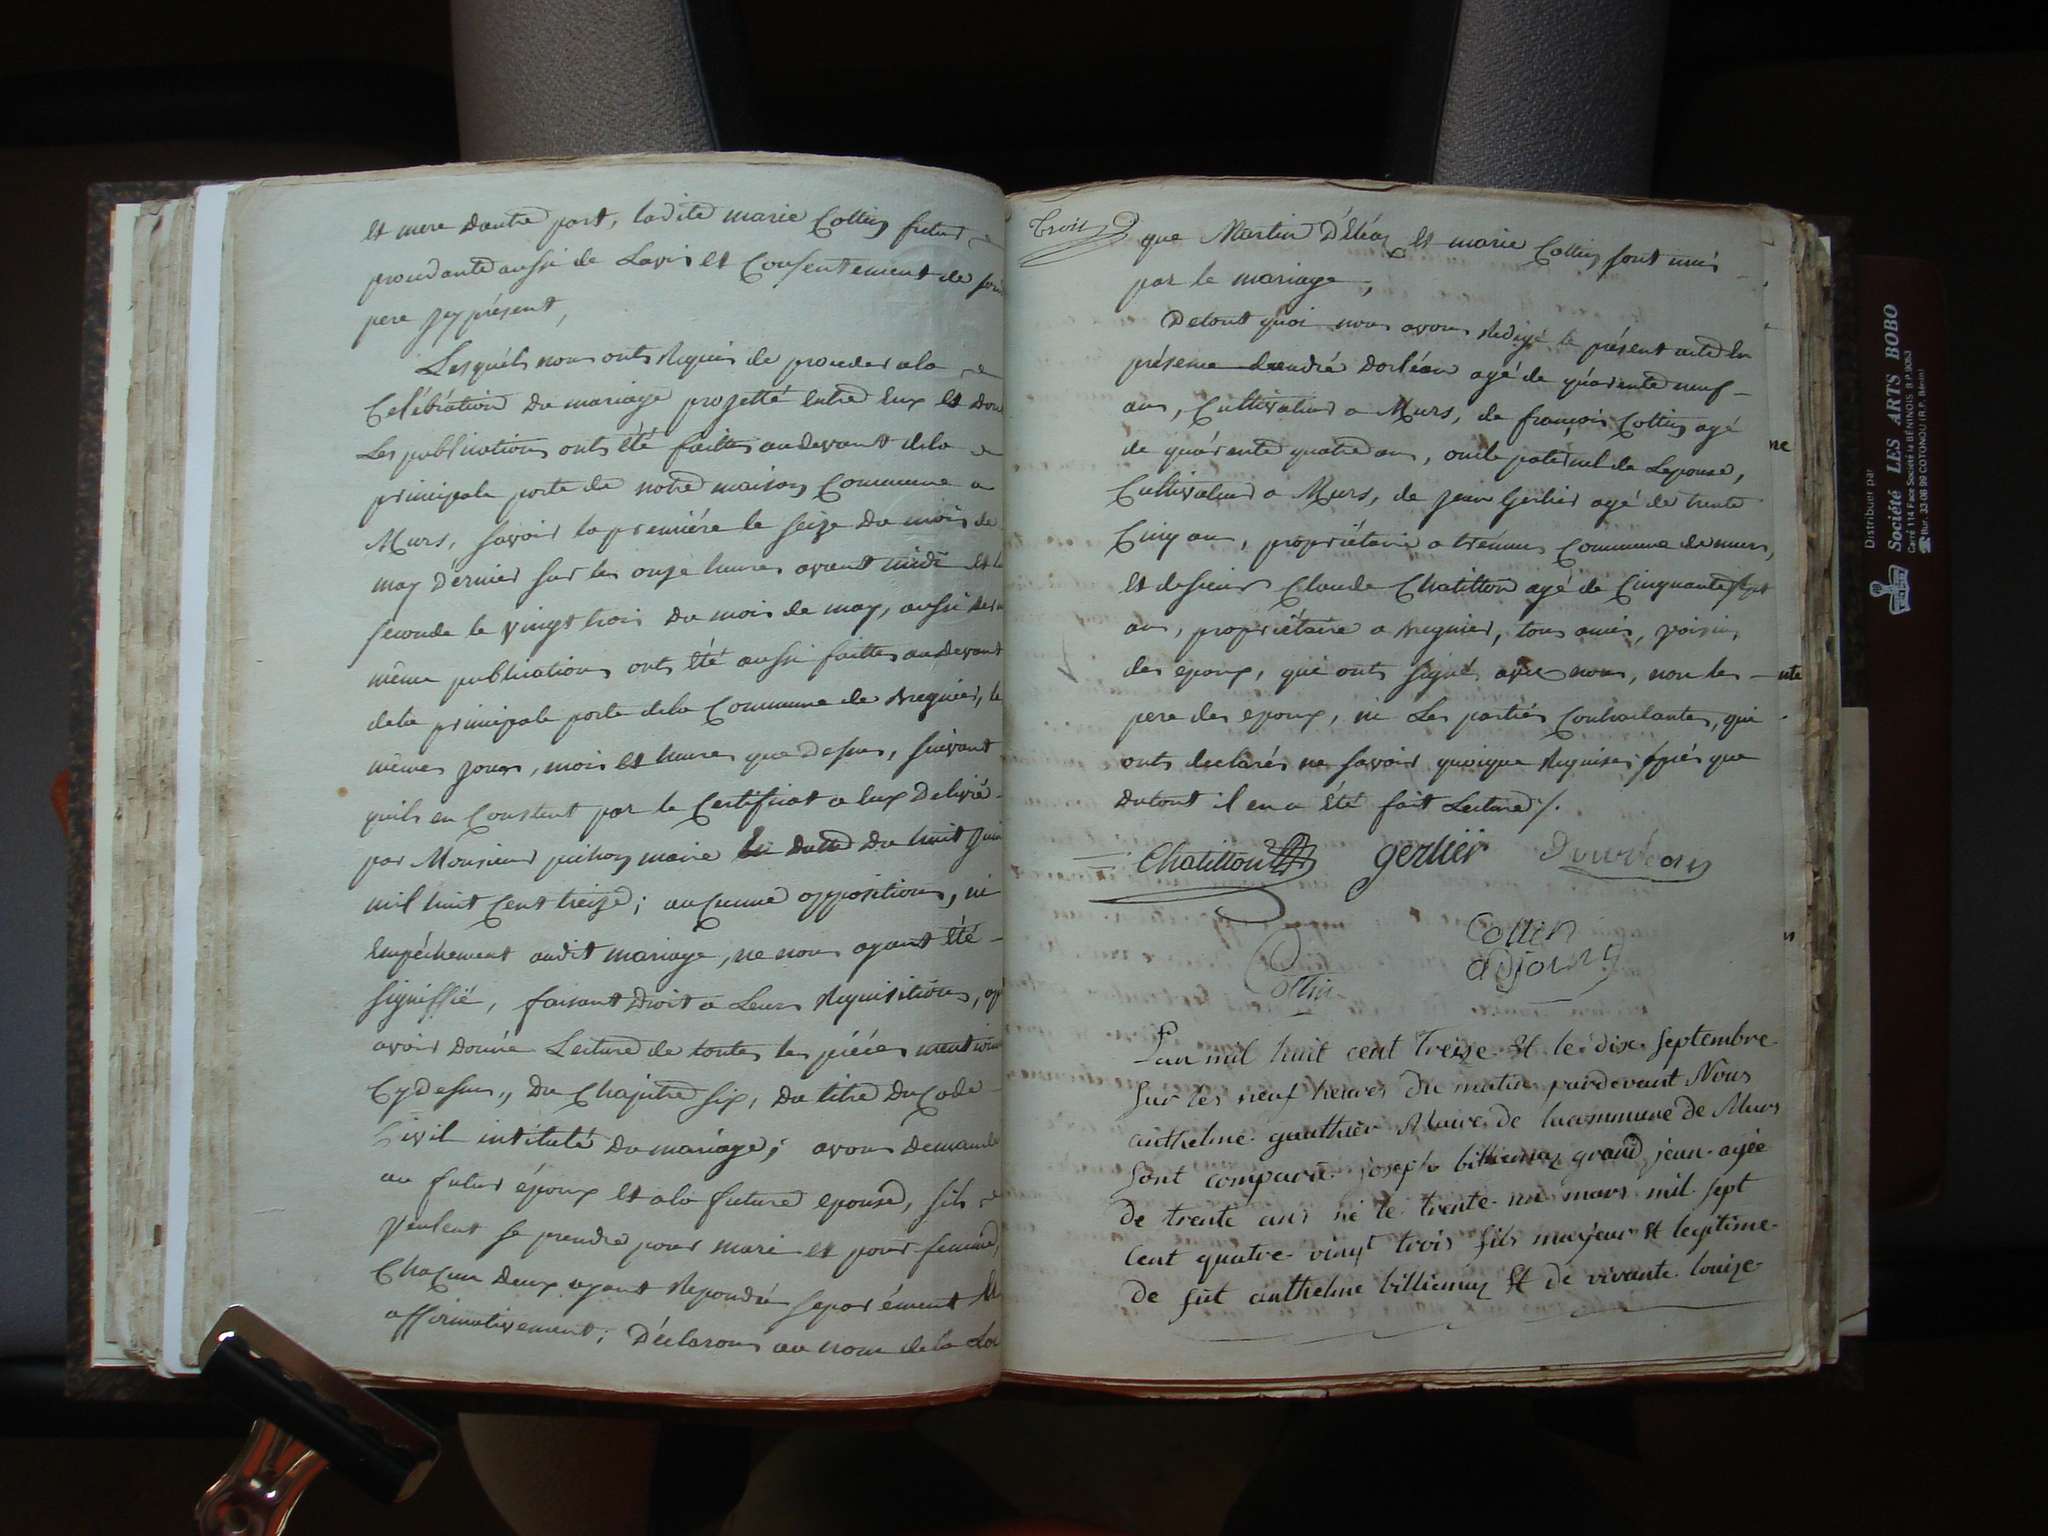 et mere dautre part, ladite marie Collin future
procedante aussi de Lavis et Consentement de son
pere jcy présent,
Lesquéls nous onts Requis de proceder ala
Celébration du mariage projetté Entre Eux et dont
Les publications onts été faittes audevant dela
principale porte de notre maison Commune a
Murs, savoir la premiére le seize du mois de
may dernier sur les onze heures avant midi et la
seconde le vingt trois du mois de may, aussi
même publications onts été aussi faittes audevant
dela principale porte dela Commune de bregnier, les
mêmes jours, mois et heures que dessus, suivant
quils en Constent par le Certificat a Eux Delivré
par Monsieur maire En datte du huit Juin
mil huit Cent treize; aucunne opposition, ni
Empéchement audit mariage, ne nous ayant été
signiffié, faisant droit a Leurs Requisitions, après
avoir donné Lecture de toutes les piéces mentionnées
Cydessus, du Chapitre six, du titre du Code
Civil intitulé du mariage; avons demandé
au futur époux et ala future epouse, sils
veulent se prendre pour mari et pour femme,
Chacun deux ayant Repondu separément et
affirmativement; Déclarons au nom de la Loi
trois
que Martin D'éléaz et marie Collin sont unis
par le mariage,
De tout quoi nous avons Rédigé le présent acte En
présence dandré Dorléan agé de quarente neuf
ans, Cultivateur a Murs, de françois Collin agé
de quarente quatre ans, oncle paternel de Lepouse,
Cultivateur a Murs, de jean Gerlier agé de trente
Cinq ans, propriétaire a Commune de murs,
et de sieur Claude Chatillon agé de Cinquante sept
ans, propriétaire a bregnier, tous amis, voisins
des epoux, qui onts signés avec nous, non les
pere des epoux, ni Les parties Contractantes, qui
onts declarés ne savoir quoique Requises après que
dutout il en a été fait Lecture /.
Chatillon gerlier Dourlean
Collin
adjoint
Collin
Lan mil huit cent treize et le dix septembre
sur les neuf heures du matin pardevant Nous
anthelme gauthier Maire de lacommune de Murs
sont comparu joseph billiemaz grand jean agée
de trente ans né le trente un mars mil sept
cent quatre vingt trois fils majeur et legitime
de fut anthelme billiemaz et de vivante louize
ne
nte
Distribuer par
Société LES ARTS BOBO
Carré 114 Face Société la BÉNINOIS B.P. 9083
Bur. 33 06 99 COTONOU (R.P. Bénin)